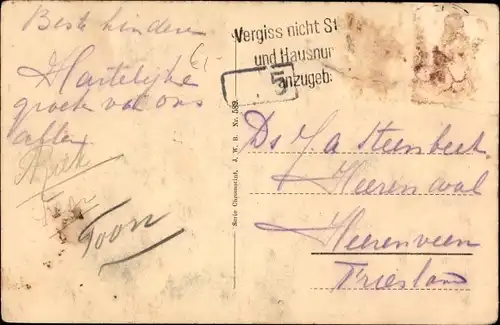 Beste kinderen
Hartelijke
groete van ons
allen
Toon
Vergiss nicht St
und Hausnum
anzugeb
Serie Chromorint, J. W. B. Nr. 589
Ds J. A Steenbeek
Heerenwal
Heerenveen
Friesland